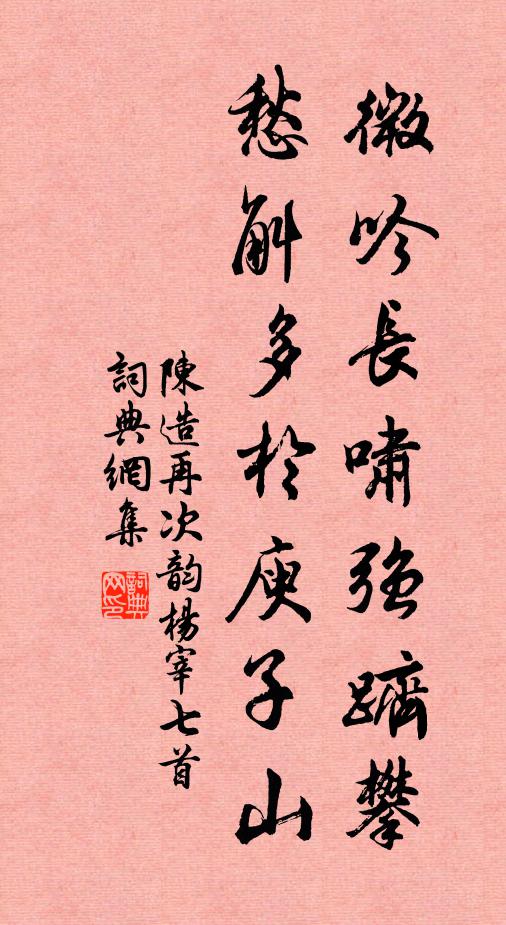 微吟長嘯強躋攀
愁斛多於庾子山
陳造再次韵楊宰七首
詞典網集
詞典网印